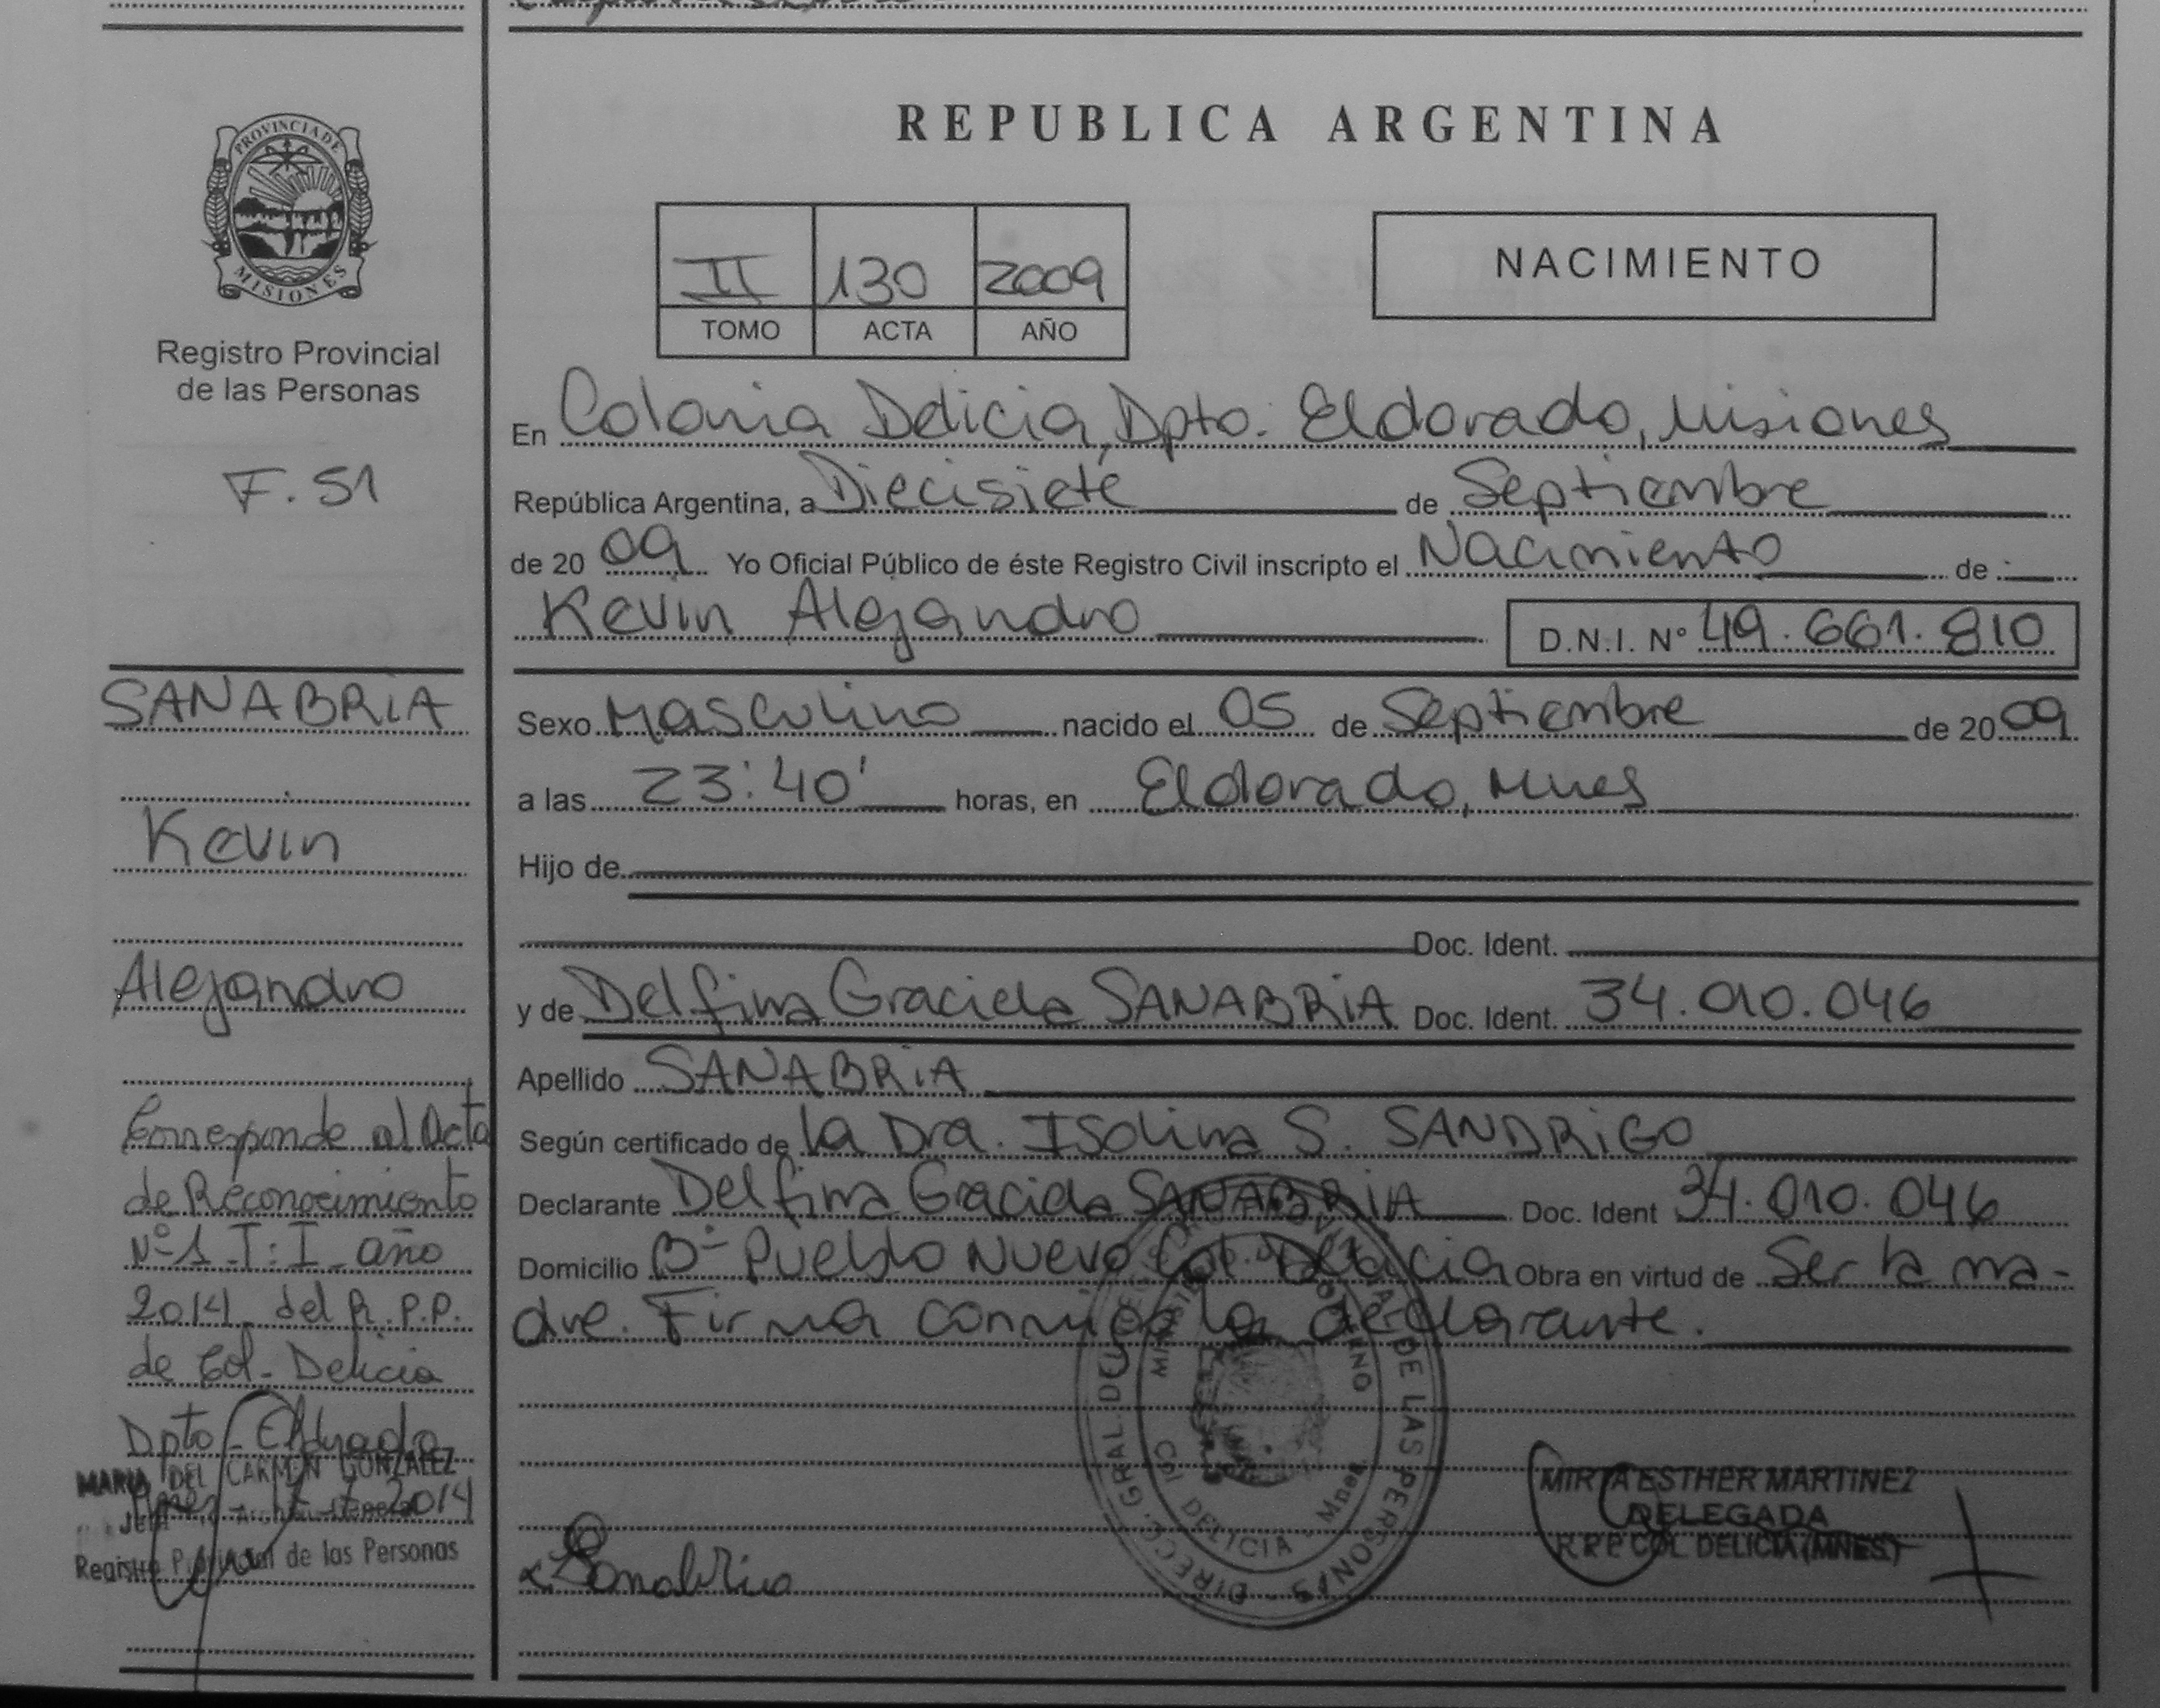 REPUBLICA ARGENTINA
PROVINCIA DE
MISIONES
Registro Provincial
de las Personas
F. 51
II 130 2009
TOMO ACTA AÑO
NACIMIENTO
En Colonia Delicia, Dpto. Eldorado, Misiones
República Argentina, a Diecisiete de Septiembre
de 20 09 Yo Oficial Público de éste Registro Civil inscripto el Nacimiento de
Kevin Alejandro D.N.I. N° 49.661.810
Sexo Masculino nacido el 05 de Septiembre de 20 09
a las 23:40' horas, en Eldorado, Mnes
Hijo de
Doc. Ident.
y de Delfina Graciela SANABRiA Doc. Ident. 34.010.046
Apellido SANABRiA
Según certificado de la Dra. Isolina S. SANDRiGO
Declarante Delfina Graciela SANABRiA Doc. Ident 34.010.046
Domicilio B° Pueblo Nuevo Col. Delicia Obra en virtud de Ser la ma-
dre. Firma conmigo la declarante.
SANABRiA
Kevin
Alejandro
Corresponde al Acta
de Reconocimiento
Nº 1 T: I año
2014 del R.P.P.
de Col. Delicia
Dpto Eldorado
MARIA DEL CARMEN GONZALEZ
Registro Provincial de las Personas
Sanabria
DIRECC. GRAL. DEL DE LAS PERSONAS
COL DELICIA - Mnes
MIRTA ESTHER MARTINEZ
DELEGADA
R.P.P COL DELICIA (MNES)